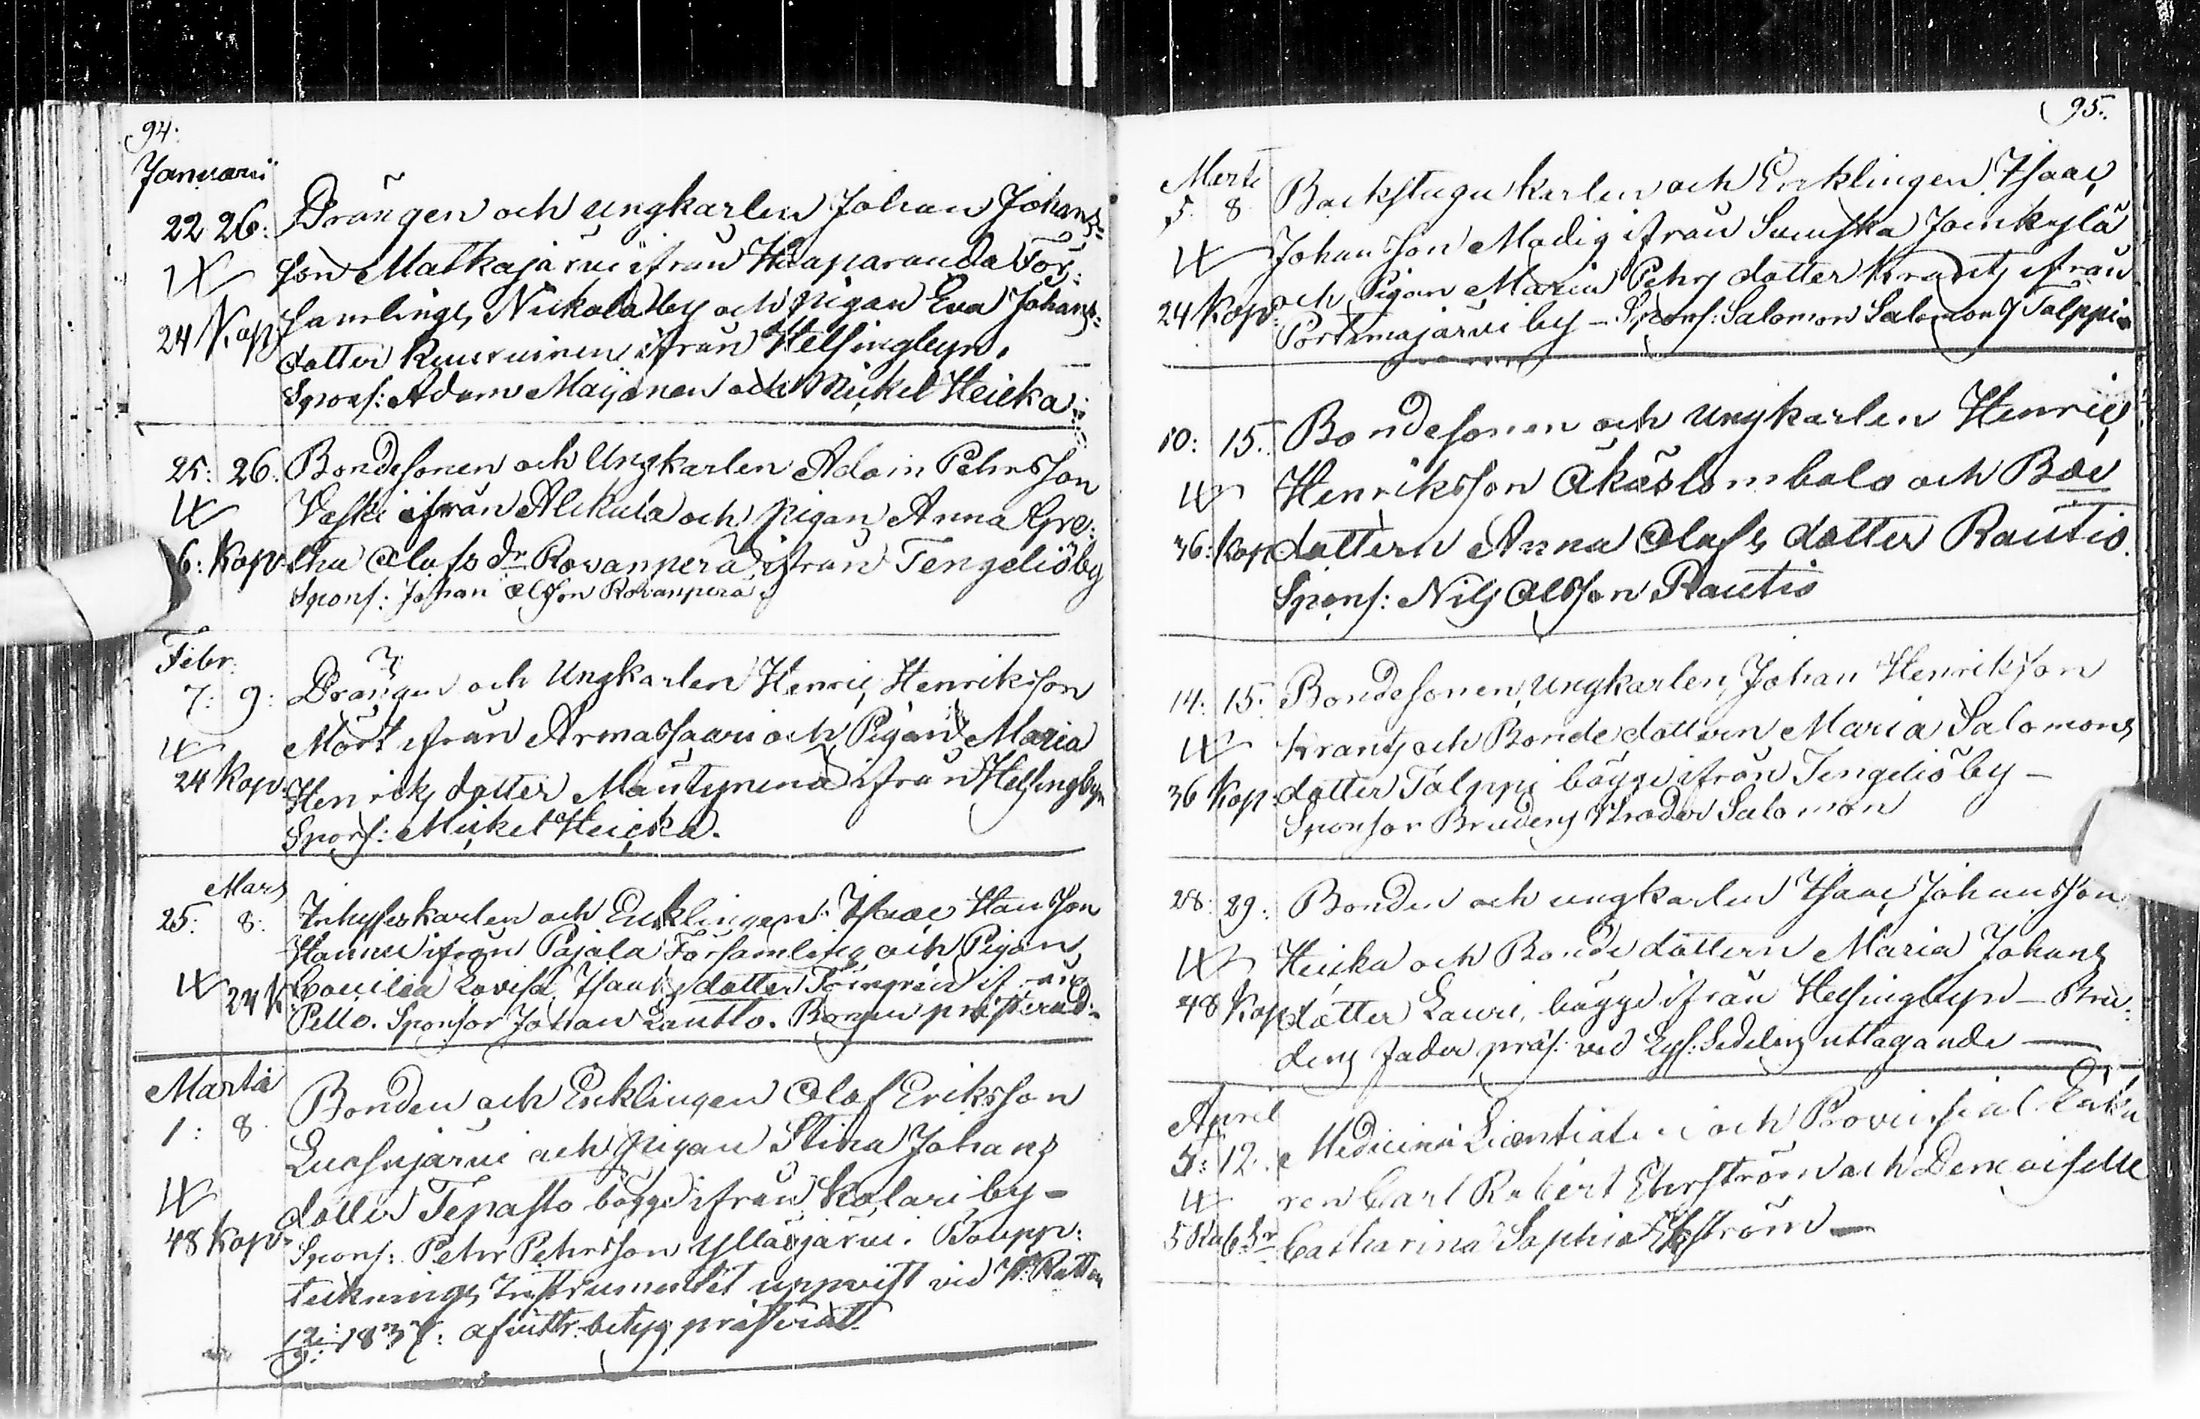 94:
Januarii
22 26: Drängen och ungkarlen Johan Johans-
son Matkajärvi ifrån Haaparanda För-
samlings, Nickala by och pigan Eva Johans-
24 Kop dotter ifrån Helsingbyn.
Spons: Adam Majanen och Mickel Heicka
25: 26. Bondesonen och Ungkarlen Adam Pehrsson
Vaski ifrån Alckula och pigan Anna Gre-
6: Kop. tha Olofs dr Rovanpera ifrån Tengeliöby
Spons: Johan Olsson Rovanpera
Febr.
7: 9: Drängen och Ungkarlen Henric Henriksson
Mört ifrån Armassaari och Pigan Maria
24 Kop. Henriks dotter ifrån Helsingbyn
Spons: Mickel Heicka.
Mars
25: 8: Inhyseskarlen och Enklingen Isaac Hansson
Hannu ifrån Pajala Församling och Pigan
24 K Lovisa Isaks dotter Törmen
Pello. Sponsor Johan Lautto.
Martii
1: 8. Bonden och Enklingen Olof Eriksson
och pigan Stina Johans
dotter Tepasto bägge ifrån Kolari by –
48 Kop. Spons: Pehr Pehrsson Ylläsjärvi. Boupp-
tecknings Instrumentet uppvist vid
1837: betyg
95.
Martii
5. 8. Backstugu karlen och Encklingen Isaac
Johansson Madig ifrån Svenska Joinkeslä
24 Kop. och Pigan Maria Pehrs dotter Krants ifrån
Portimajärvi by – Spons: Salomon Salomons Talppi
10: 15. Bondesonen och ungkarlen Henric
Henriksson Äkäslombolo och Bde
36: Kop dottern Anna Olofs dotter Rautio.
Spons: Nils Olsson Rautio
14: 15: Bondesonen, Ungkarlen, Johan Henriksson
Krants och Bondedottern Maria Salomons
36 Kop: dotter Talppi bägge ifrån Tengeliöby –
Sponsor Brudens Broder Salomon
28: 29: Bonden och ungkarlen Isaac Johansson
Heicka och Bonde dottern Maria Johans
48 Kop dotter Lauri, bägge ifrån Helsingbyn – Bru-
dens fader præs: ved Lys: Sedelens uttagande —
April
5: 12. Medicinæ Licentiaten och Provincial Läka
ren Carl Robert Ehrström och Demoiselle
5 Rub Sr Catharina Sophia —